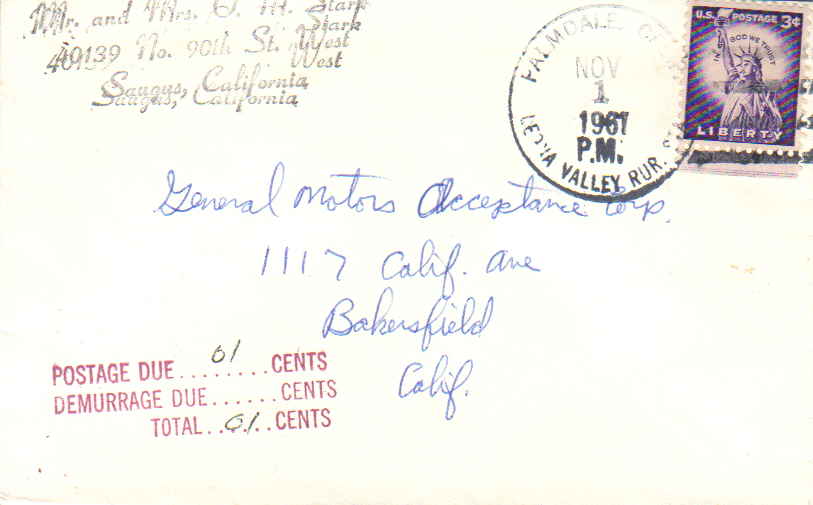 Mr. and Mrs. O. M. Stark
40139 No. 90th St. West
Saugus, California
PALMDALE
NOV
1
1961
P.M.
LEONA VALLEY RUR. STA
U.S. POSTAGE 3¢
IN GOD WE TRUST
LIBERTY
General Motors Acceptance Corp.
1117 Calif. Ave
Bakersfield
Calif.
POSTAGE DUE....01....CENTS
DEMURRAGE DUE......CENTS
TOTAL..01..CENTS